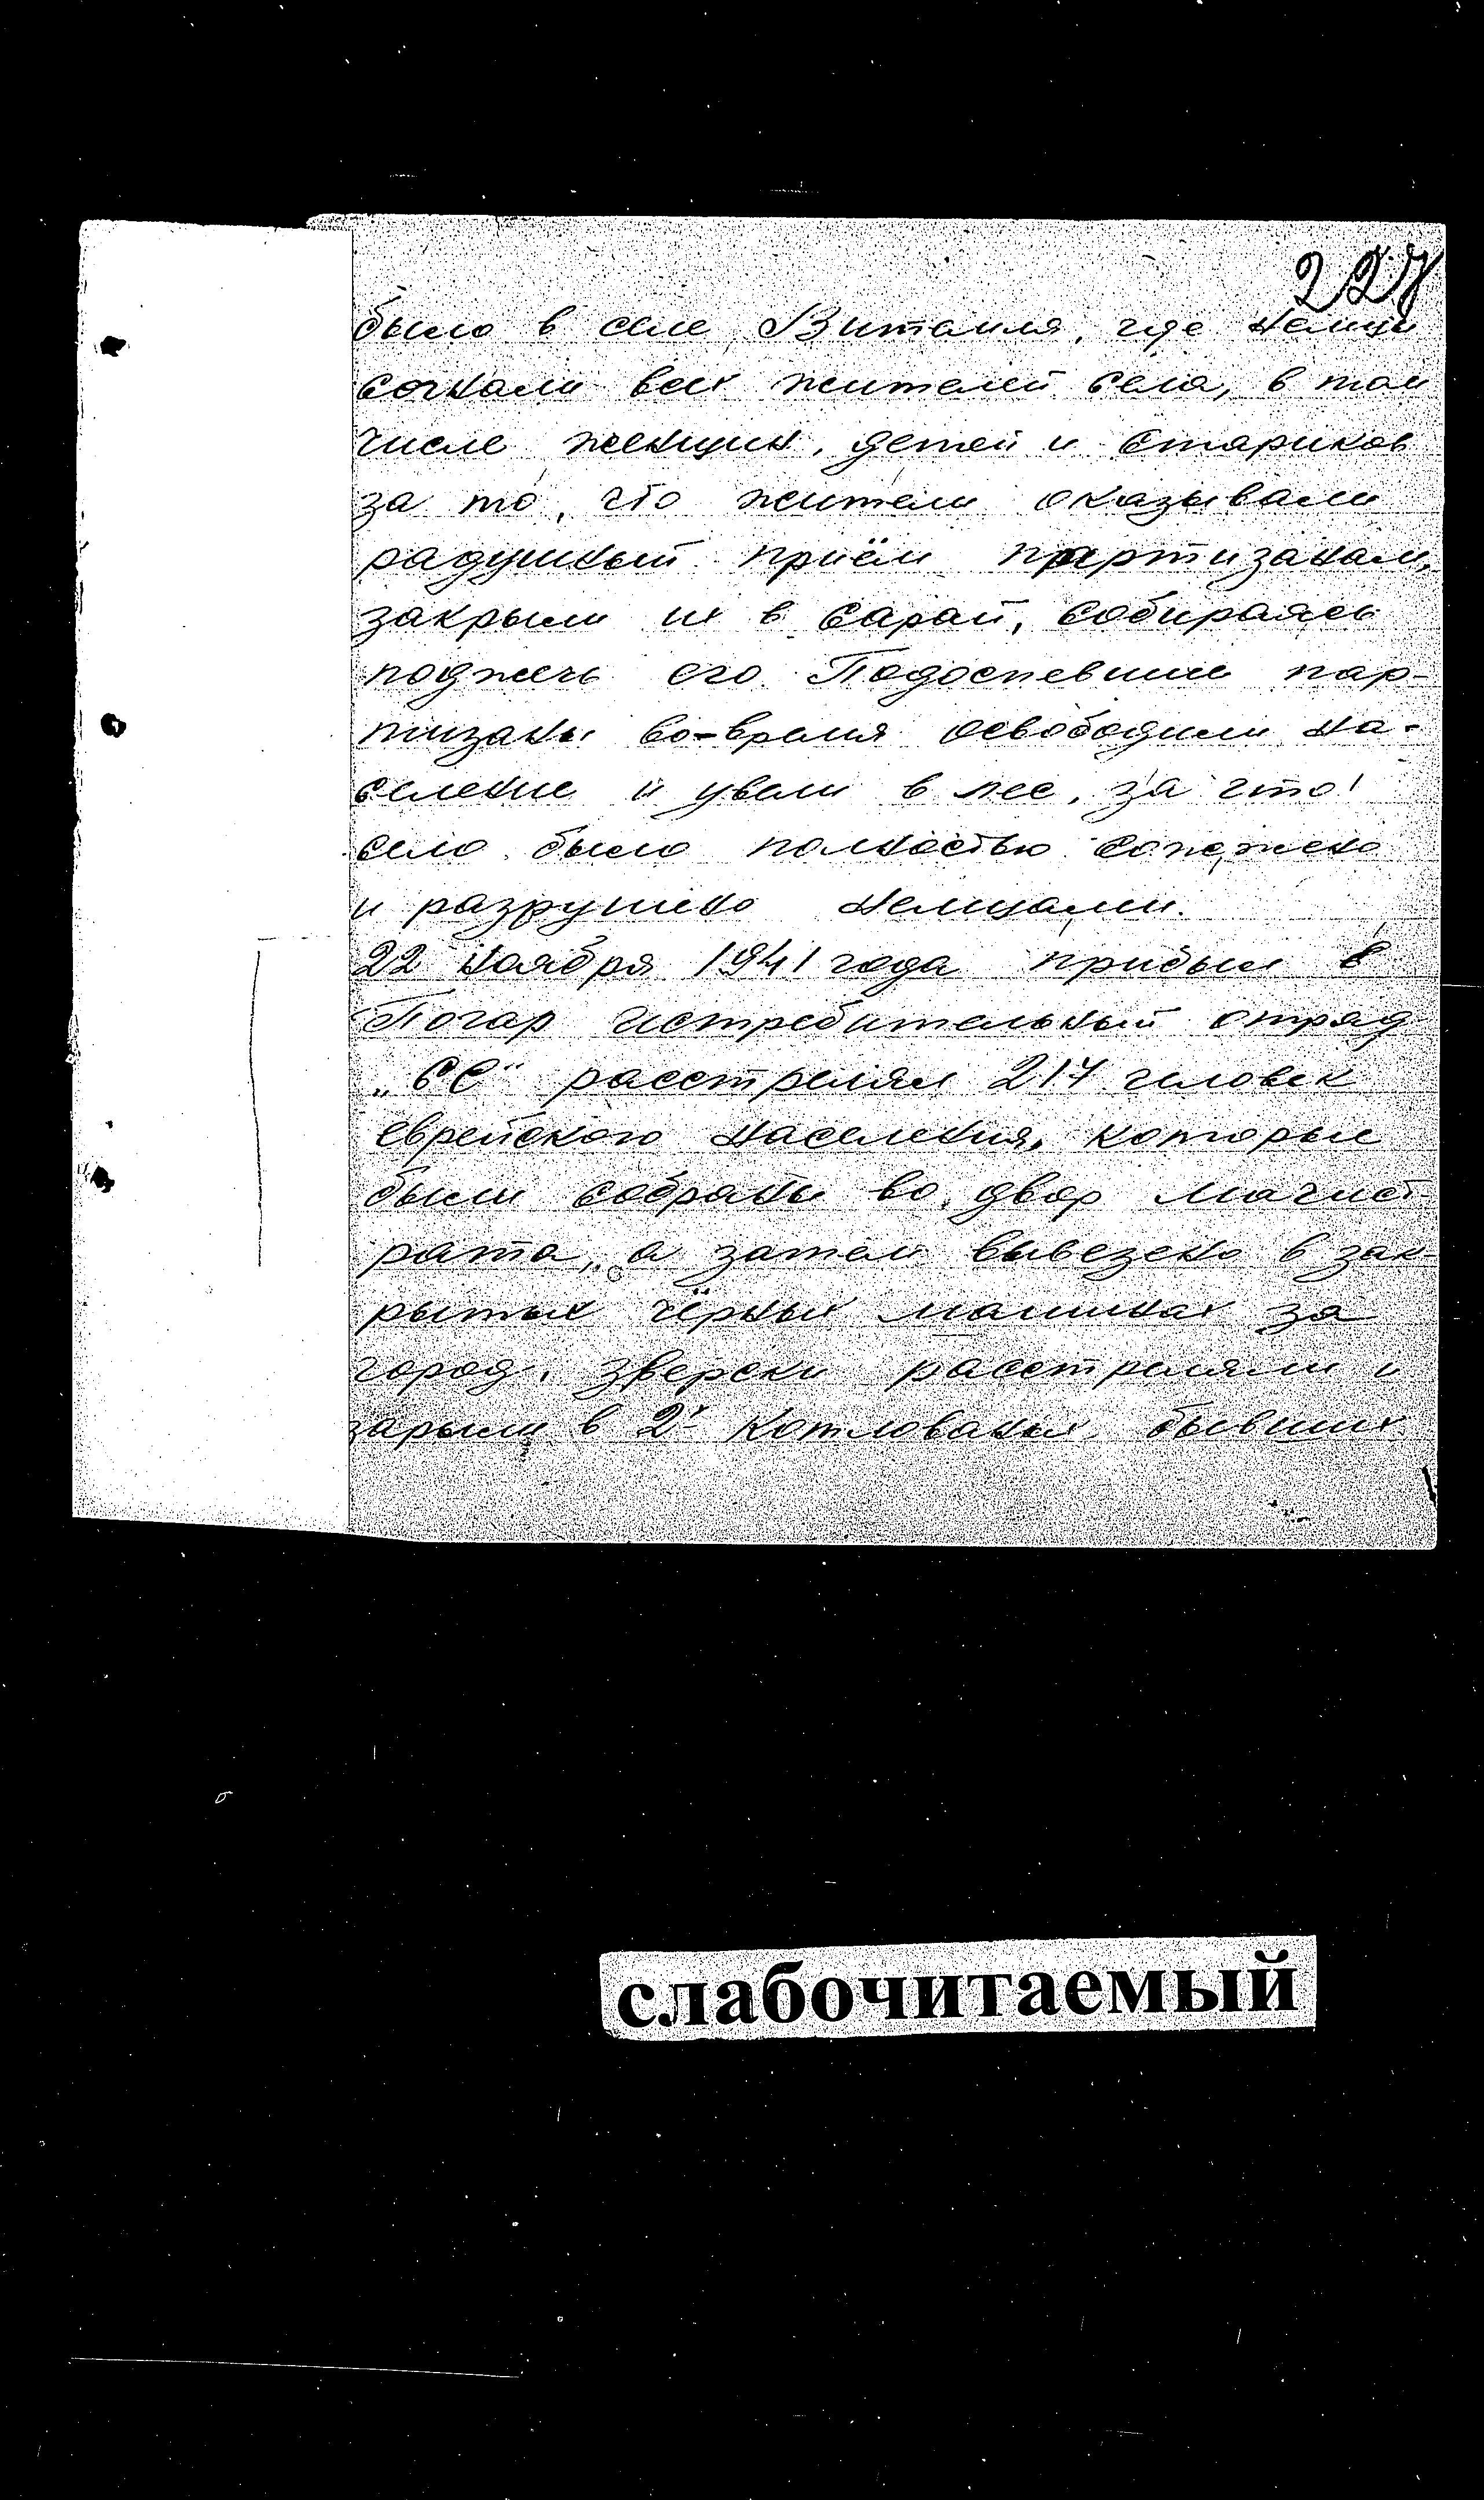 227
было в селе Витемля, где немцы
согнали всех жителей села, в том
числе женщин, детей и стариков
за то, что жители оказывали
радушный приём партизанам,
закрыли их в сарай, собираясь
поджечь его. Подоспевшие пар-
тизаны во-время освободили на-
селение и увели в лес, за что
село было полностью сожжено
и разрушено немцами.
22 ноября 1941 года прибыл в
Погар истребительный отряд
„СС" расстрелял 217 человек
еврейского населения, которые
были собраны во двор магист-
рата, а затем вывезено в зак-
рытых чёрных машинах за
город, зверски расстреляли и
зарыли в 2х котлованах, бывших
слабочитаемый